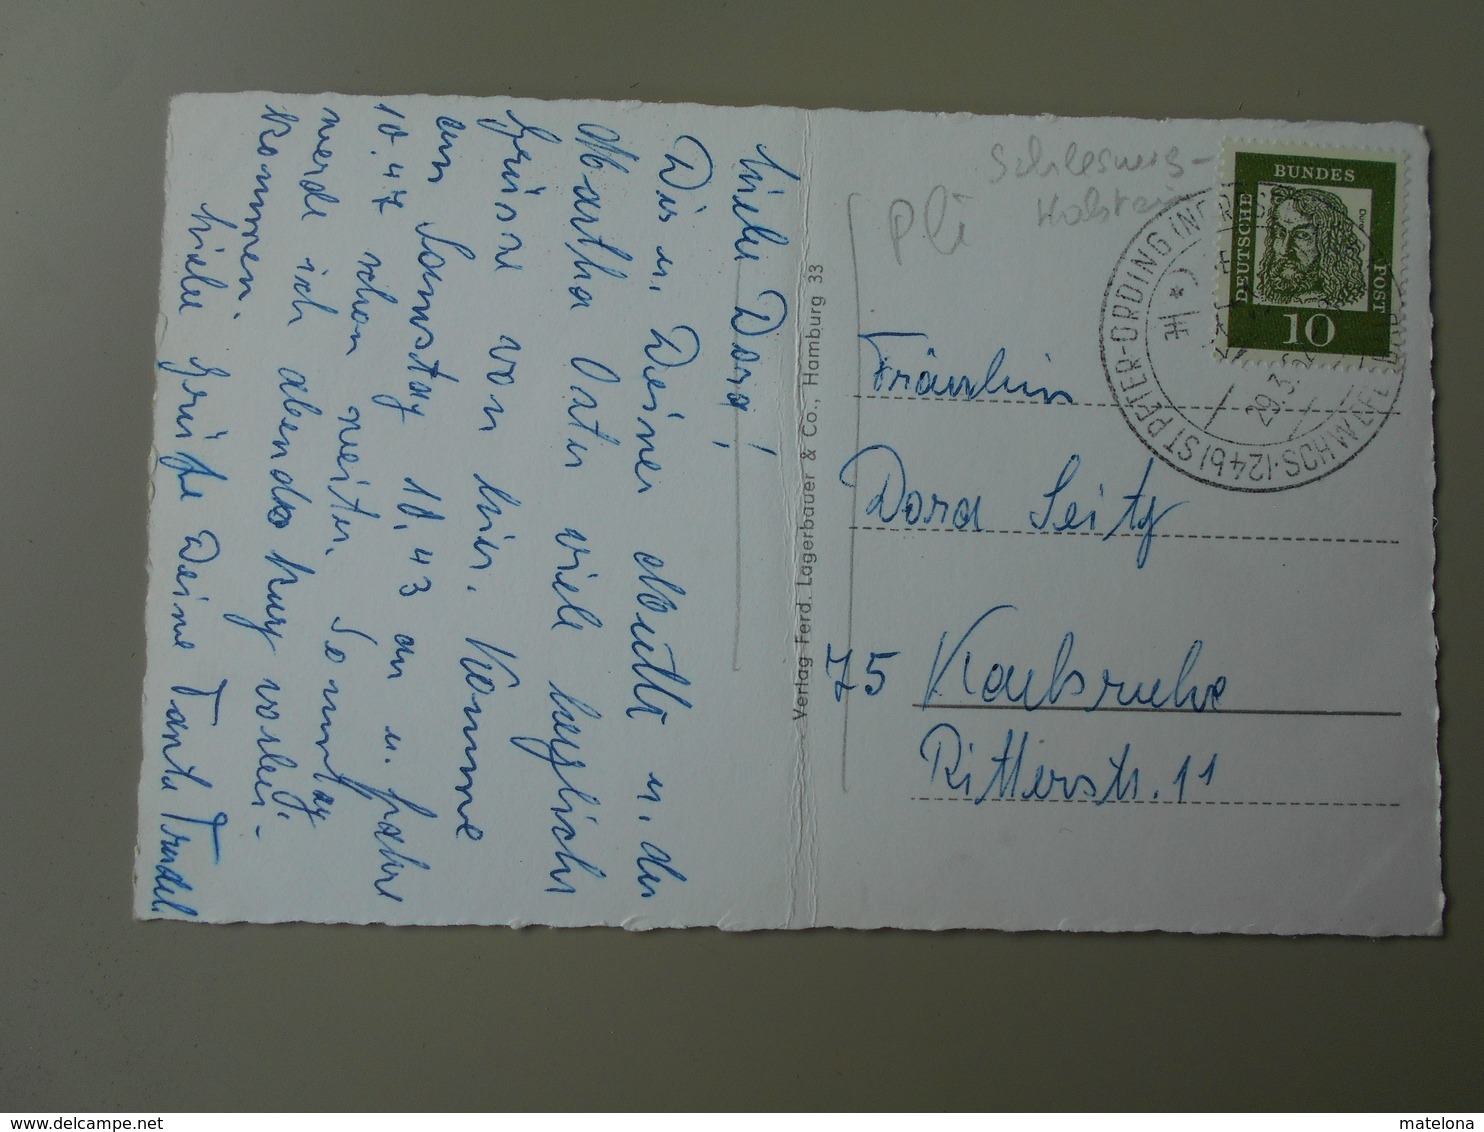 Liebe Dora!
Dir u. Deiner Mutti u. der
Martha Ostern viele herzliche
Grüsse von hier. Komme
am Samstag 10.43 an u. fahre
10.47 schon weiter. Sonntag
werde ich abends kurz vorbei-
kommen.
Viele Grüße Deine Tante Trudel
Verlag Ferd. Lagerbauer & Co., Hamburg 33
Pli
Schleswig-
Holstein
DEUTSCHE BUNDES POST
10
(24b) ST PETER-ORDING
29.3.
Fräulein
Dora Seitz
75 Karlsruhe
Ritterstr. 11
www.delcampe.net
matelona